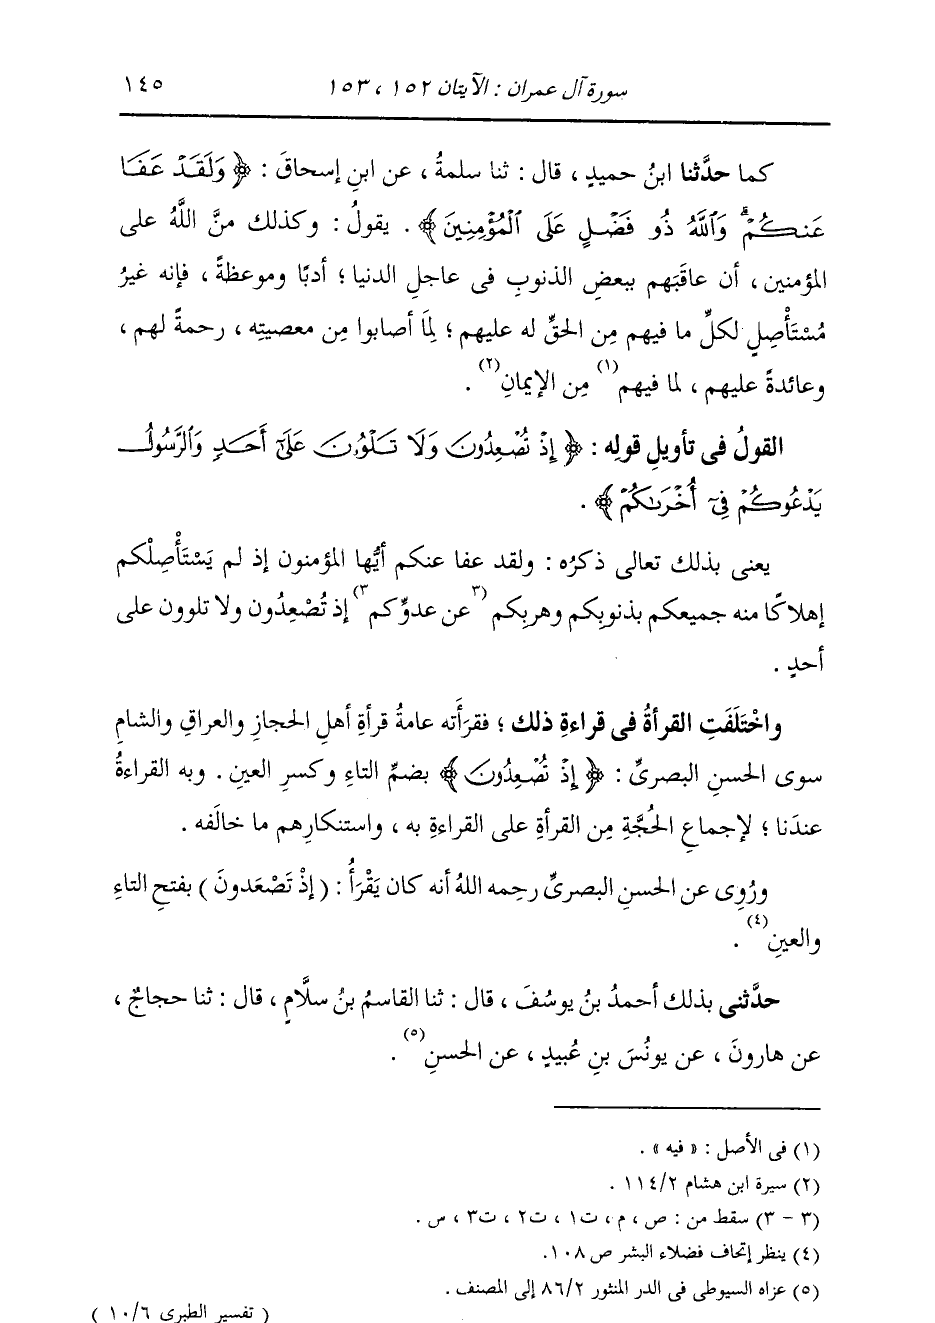 سورة آل عمران : الآيتان ١٥٢ ، ١٥٣ ١٤٥
كما حدَّثنا ابنُ حميدٍ ، قال : ثنا سلمةُ ، عن ابنِ إسحاقَ : ﴿ وَلَقَدْ عَفَا
عَنكُمْۗ وَٱللَّهُ ذُو فَضْلٍ عَلَى ٱلْمُؤْمِنِينَ ﴾ . يقولُ : وكذلك منَّ اللَّهُ على
المؤمنين ، أن عاقَبَهم ببعضِ الذنوبِ فى عاجلِ الدنيا ؛ أدبًا وموعظةً ، فإنه غيرُ
مُسْتَأْصِلٍ لكلِّ ما فيهم مِن الحقِّ له عليهم ؛ لِمَا أصابوا مِن معصيتِه ، رحمةً لهم ،
وعائدةً عليهم ، لما فيهم(١) مِن الإيمانِ(٢) .
القولُ فى تأويلِ قولِه : ﴿ إِذْ تُصْعِدُونَ وَلَا تَلْوُۥنَ عَلَىٰٓ أَحَدٍ وَٱلرَّسُولُ
يَدْعُوكُمْ فِىٓ أُخْرَىٰكُمْ ﴾ .
يعنى بذلك تعالى ذكرُه : ولقد عفا عنكم أيُّها المؤمنون إذ لم يَسْتَأْصِلْكم
إهلاكًا منه جميعكم بذنوبِكم وهربِكم (٣عن عدوِّكم٣) إذ تُصْعِدُون ولا تلوون على
أحدٍ .
واخْتَلَفَتِ القرأةُ فى قراءةِ ذلك ؛ فقرَأَته عامةُ قرأةِ أهلِ الحجازِ والعراقِ والشامِ
سوى الحسنِ البصرىِّ : ﴿ إِذْ تُصْعِدُونَ ﴾ بضمِّ التاءِ وكسرِ العينِ . وبه القراءةُ
عندَنا ؛ لإجماعِ الحُجَّةِ مِن القرأةِ على القراءةِ به ، واستنكارِهم ما خالَفه .
ورُوِى عن الحسنِ البصرىِّ رحِمه اللهُ أنه كان يَقْرَأُ : ( إذْ تَصْعَدونَ ) بفتحِ التاءِ
والعينِ(٤) .
حدَّثنى بذلك أحمدُ بنُ يوسُفَ ، قال : ثنا القاسمُ بنُ سلَّامٍ ، قال : ثنا حجاجٌ ،
عن هارونَ ، عن يونُسَ بنِ عُبيدٍ ، عن الحسنِ(٥) .
(١) فى الأصل : « فيه » .
(٢) سيرة ابن هشام ١١٤/٢ .
(٣ - ٣) سقط من : ص ، م ، ت١ ، ت٢ ، ت٣ ، س .
(٤) ينظر إتحاف فضلاء البشر ص ١٠٨.
(٥) عزاه السيوطى فى الدر المنثور ٨٦/٢ إلى المصنف .
( تفسير الطبرى ١٠/٦ )